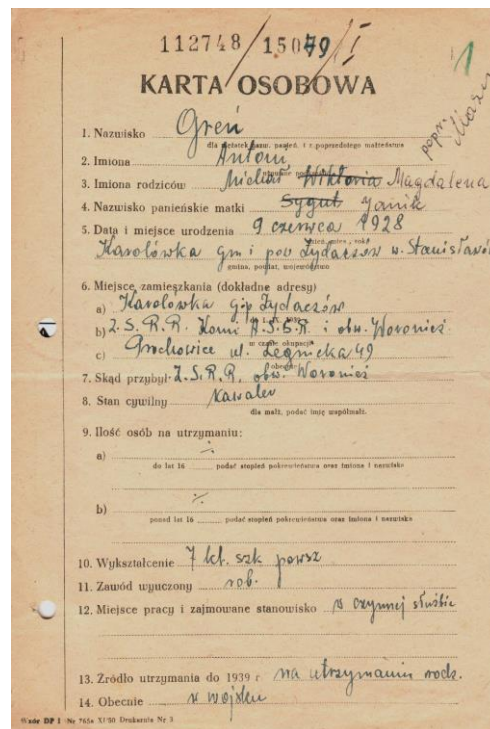 112748/15049/I
1
KARTA OSOBOWA
popr.
1. Nazwisko Greń
dla mężatek nazw. panień. i z poprzedniego małżeństwa
2. Imiona Antoni
3. Imiona rodziców Michał Wiktoria Magdalena
4. Nazwisko panieńskie matki Sygut Janik
5. Data i miejsce urodzenia 9 czerwca 1928
dzień, mies., rok
Karolówka gm i pow Żydaczów w. Stanisławów
gmina, powiat, województwo
6. Miejsce zamieszkania (dokładne adresy)
a) Karolówka g i p Żydaczów
b) Z.S.R.R. Komi A.S.S.R. i obw. Woronież
w czasie okupacji
c) Grochowice ul. Legnicka 49
obecnie
7. Skąd przybył Z.S.R.R. obw. Woronież
8. Stan cywilny Kawaler
dla małż. podać imię współmałż.
9. Ilość osób na utrzymaniu:
a) ·/.
do lat 16 podać stopień pokrewieństwa oraz imiona i nazwiska
b) ·/.
ponad lat 16 podać stopień pokrewieństwa oraz imiona i nazwiska
10. Wykształcenie 7 kl. szk powsz
11. Zawód wyuczony rob.
12. Miejsce pracy i zajmowane stanowisko w czynnej służbie
13. Źródło utrzymania do 1939 r. na utrzymaniu rodz.
14. Obecnie w wojsku
Wzór DP 1 Nr 765a XI/50 Drukarnia Nr 3